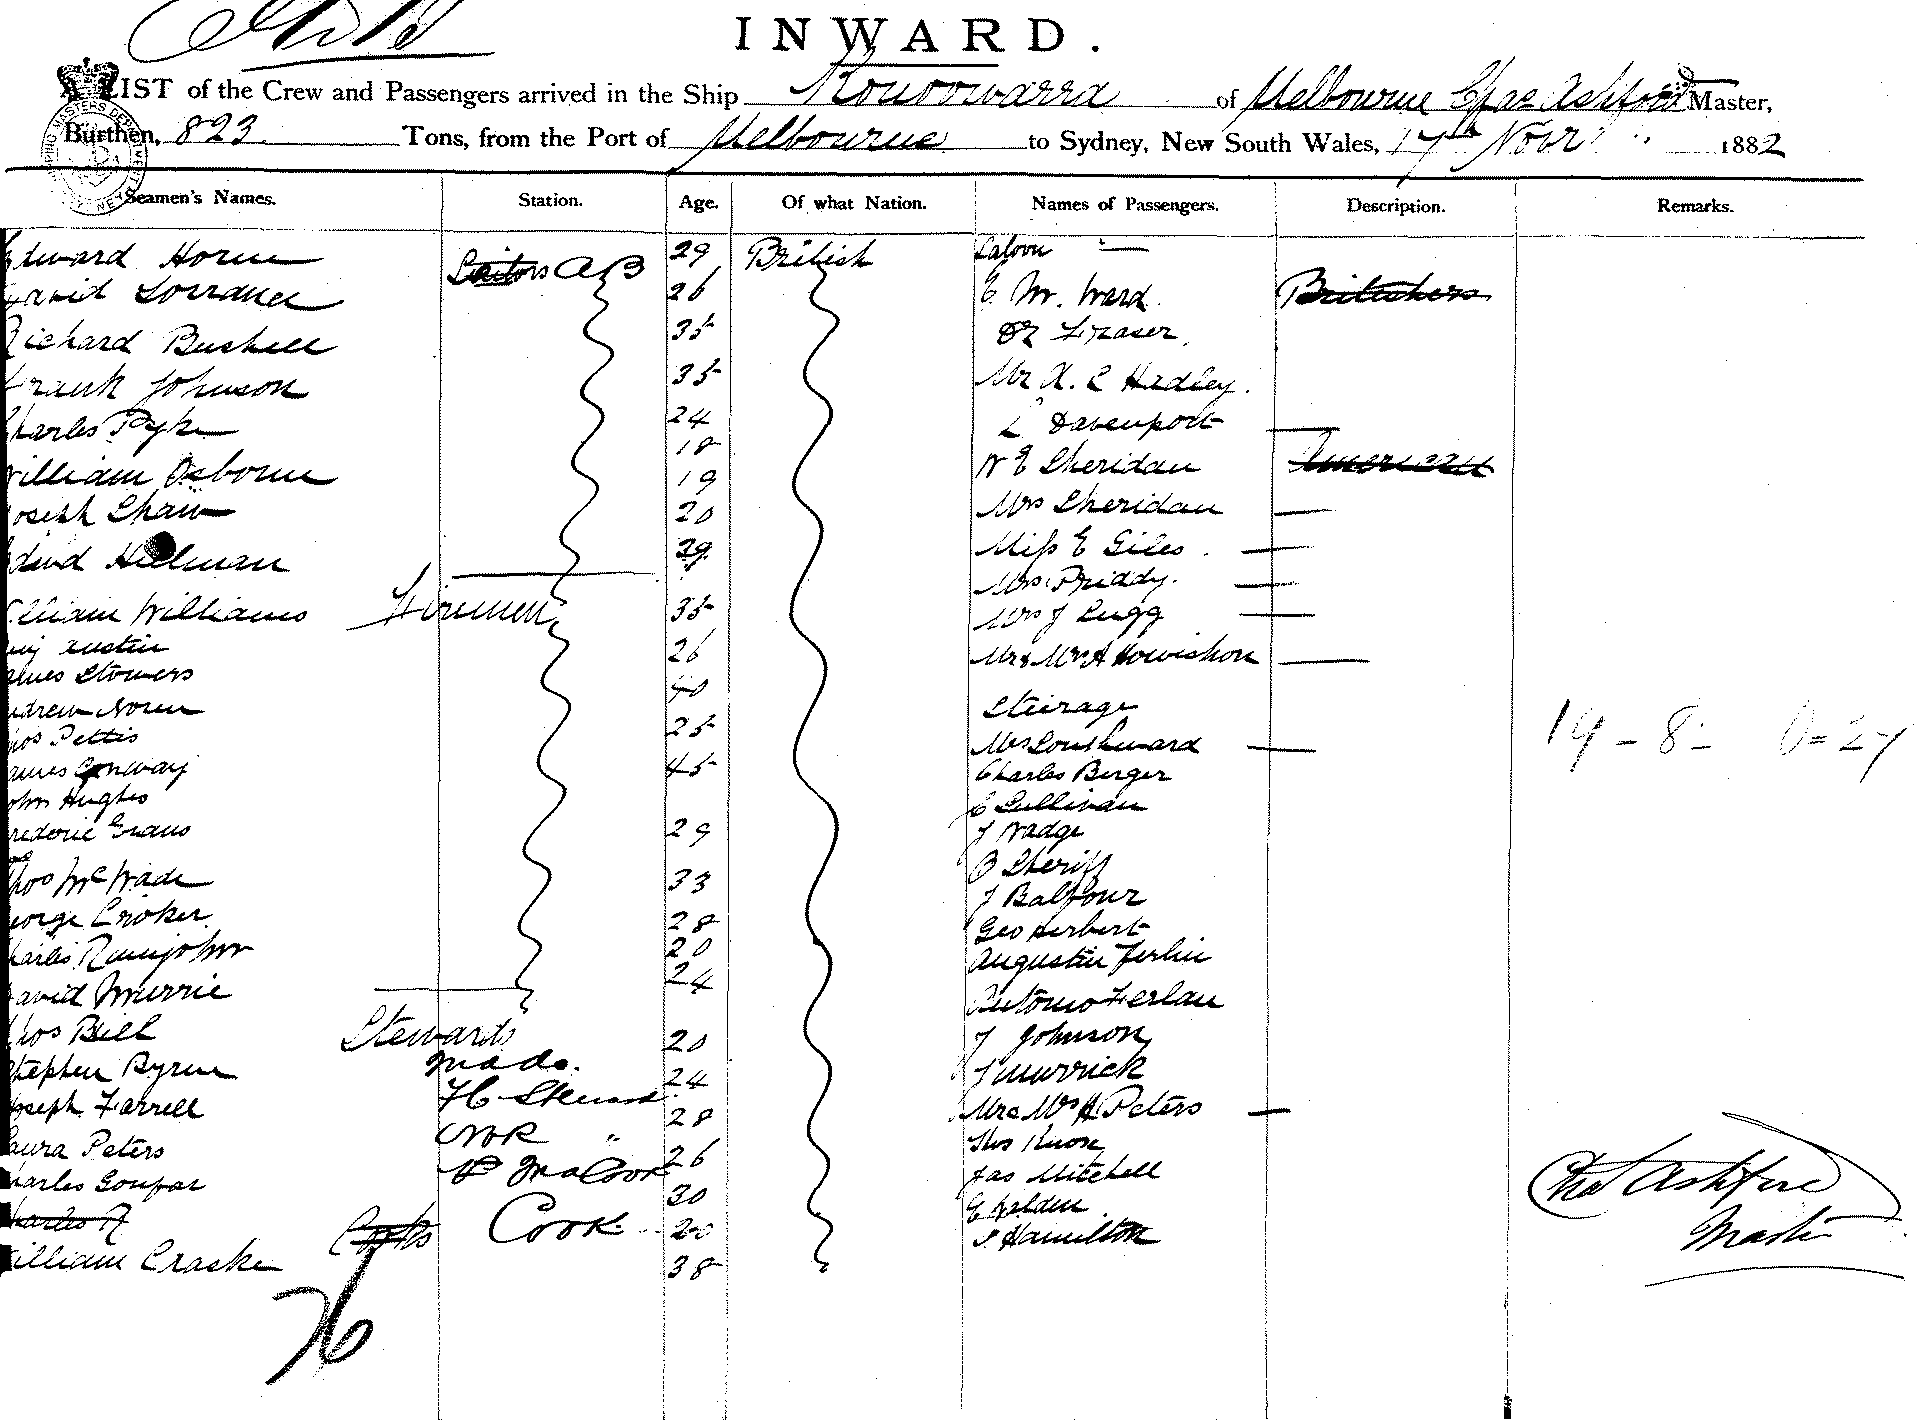 INWARD.
A LIST of the Crew and Passengers arrived in the Ship Konoowarra of Melbourne Chas Ashford Master,
Burthen, 823 Tons, from the Port of Melbourne to Sydney, New South Wales, 17th Novr 1882
Seamen's Names. Station. Age. Of what Nation. Names of Passengers. Description. Remarks.
Edward Horne Sailors AB 29 British Saloon
David 26 E W. Ward. Britishers
Richard Bushell 35 Dr Frazer
Frank Johnson 35 Mr X. L Hadley.
Charles Pyke 24 L Davenport
William Osborne 18 W E Sheridan American
Joseph Shaw 19 Mrs Sheridan
20
Edwd Hillman 29 Miss E Giles
Mrs Priddy.
William Williams Firemen 35 Mrs J Lugg
Austin 26 Mr & Mrs A Howishon
James Stowers 40
Andrew Noren Steerage
Thos Pettis 25 Mrs 19 - 8 -
James Conway 45 Charles Berger
John Hughes E Sullivan
Frederic Evans 29 J Wadge
B Sheriff
Thos McWade 33 J Balfour
George Croker 28 Geo Herbert
Charles Ramjohn 20 Augustin Ferlin
David Murrie 24 Antonio Ferlan
Thos Bull Stewards 20 J Johnson
Stephen Byrne do. 24 J Murrick
Joseph Farrell 28 Mr & Mrs A Peters
Laura Peters 26 Thos Knox
Charles 30 Jas Mitchell Chas Ashford
Charles Cooks Cook 20 E Walden
J Hamilton Master
William Craske 38
76